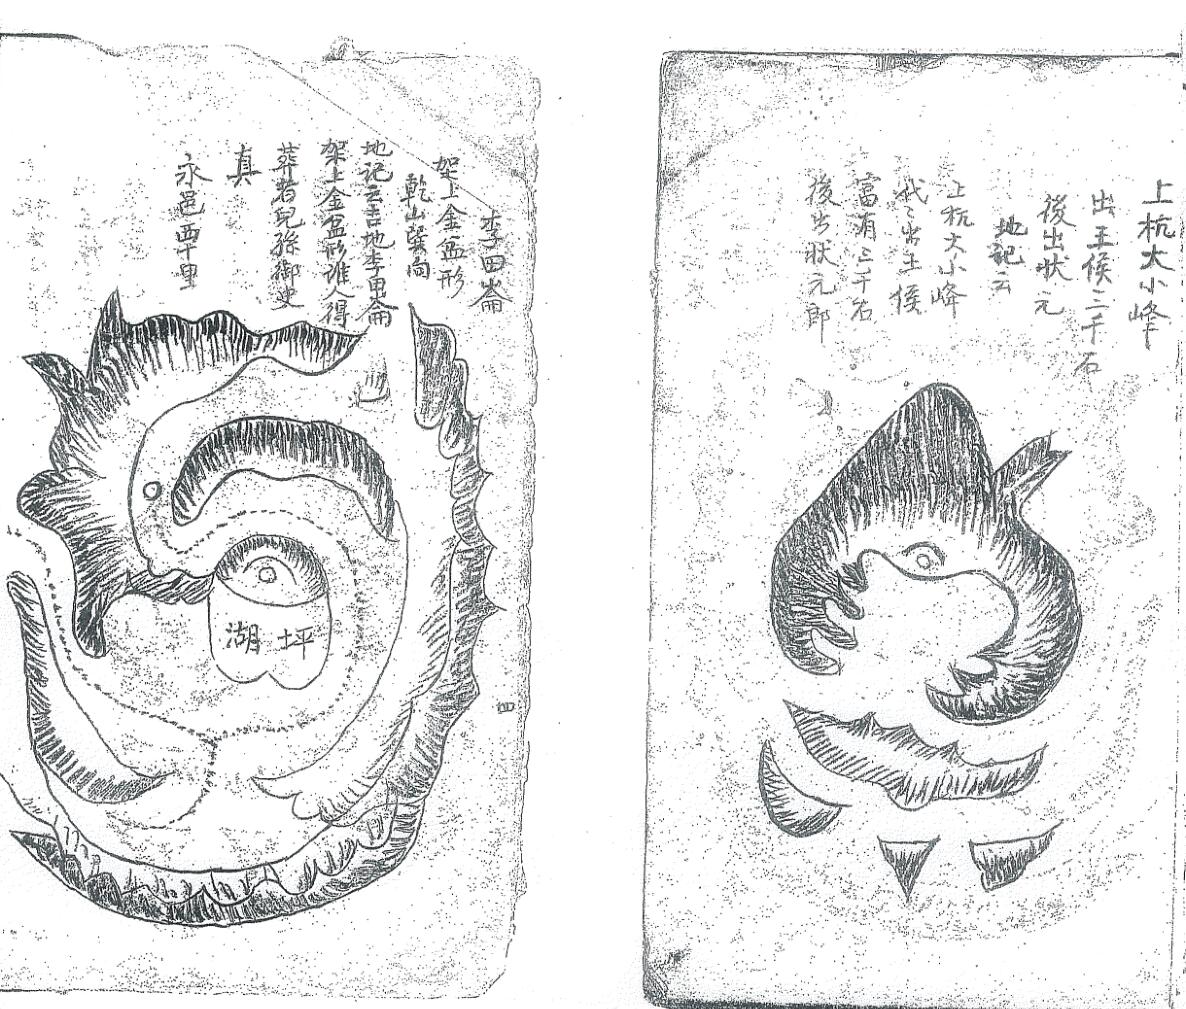 上杭大小峰
出王侯二千石
後出狀元
地記云
上杭大小峰
代〻出王侯
富有三千石
後出狀元郎
李田崙
架上金盆形
乾山巽向
地記云吉地李田崙
架上金盆形誰人得
葬若兒孫御史
真
永邑里
湖坪
四